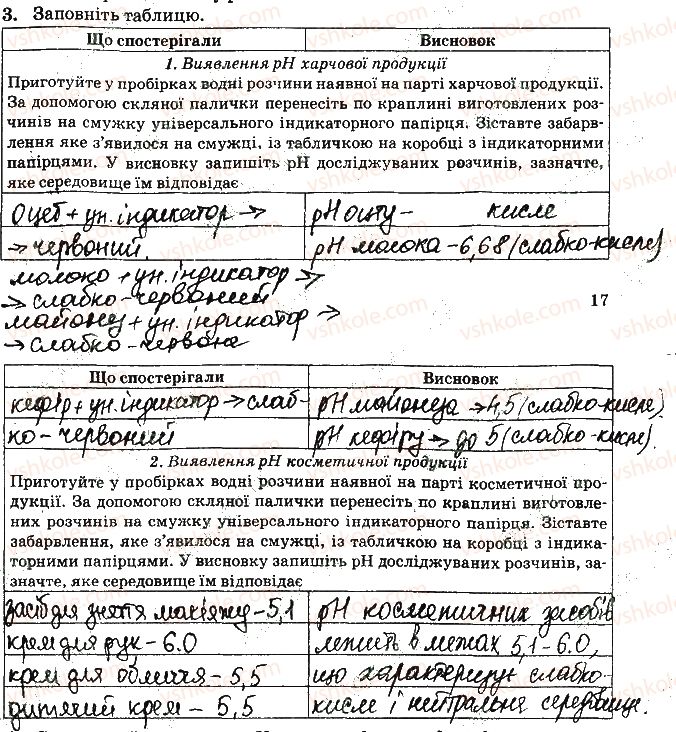 3. Заповніть таблицю.
Що спостерігали Висновок
1. Виявлення рН харчової продукції
Приготуйте у пробірках водні розчини наявної на парті харчової продукції.
За допомогою скляної палички перенесіть по краплині виготовлених роз-
чинів на смужку універсального індикаторного папірця. Зіставте забарв-
лення яке з’явилося на смужці, із табличкою на коробці з індикаторними
папірцями. У висновку запишіть рН досліджуваних розчинів, зазначте,
яке середовище їм відповідає
Оцет + ун. індикатор → рН оцту - кисле
→ червоний. рН молока - 6,68 (слабко-кисле)
молоко + ун. індикатор →
→ слабко-червоний
17
майонез + ун. індикатор →
→ слабко-червоне
Що спостерігали Висновок
кефір + ун. індикатор → слаб- рН майонеза → 4,5 (слабко-кисле).
ко-червоний рН кефіру → до 5 (слабко-кисле).
2. Виявлення рН косметичної продукції
Приготуйте у пробірках водні розчини наявної на парті косметичної про-
дукції. За допомогою скляної палички перенесіть по краплині виготовле-
них розчинів на смужку універсального індикаторного папірця. Зіставте
забарвлення, яке з’явилося на смужці, із табличкою на коробці з індика-
торними папірцями. У висновку запишіть рН досліджуваних розчинів, за-
значте, яке середовище їм відповідає
засіб для зняття макіяжу - 5,1 рН косметичних засобів
крем для рук - 6.0 лежить в межах 5,1 - 6.0,
крем для обличчя - 5,5 що характеризує слабко-
дитячий крем - 5,5 кисле і нейтральне середовище.
vshkole.com